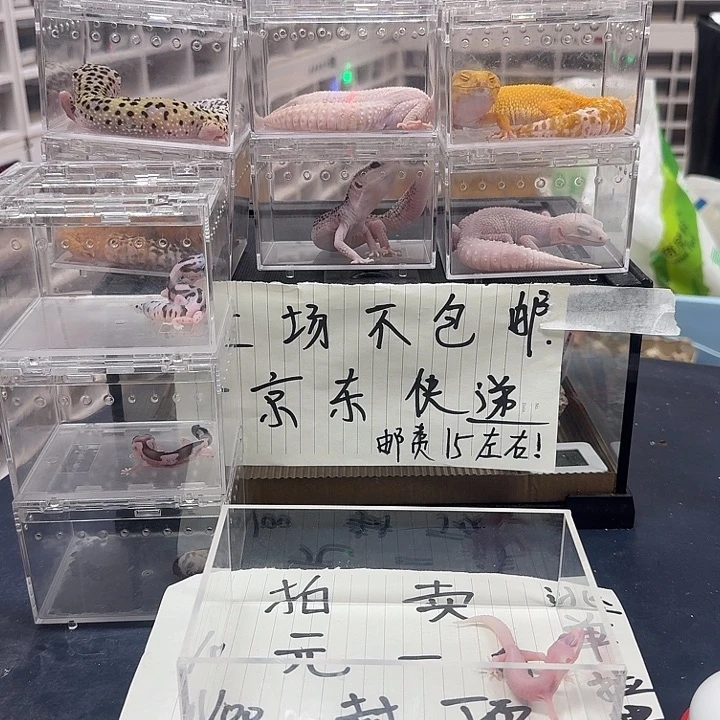 场不包邮
京东快递
邮费15左右!
拍卖
元一
100封顶